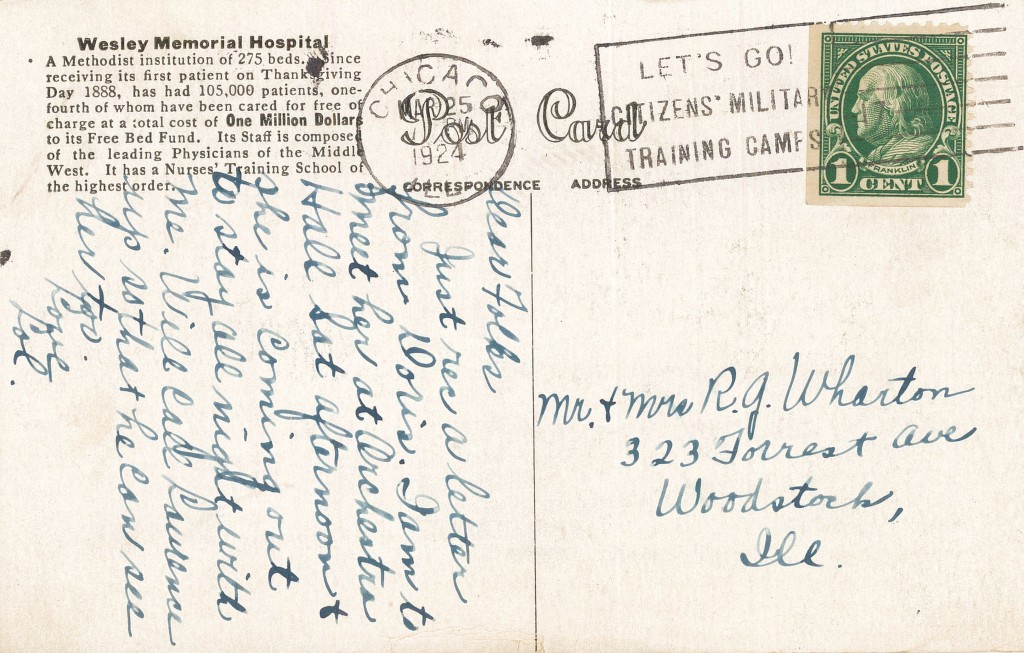 Wesley Memorial Hospital
A Methodist institution of 275 beds. Since
receiving its first patient on Thanksgiving
Day 1888, has had 105,000 patients, one-
fourth of whom have been cared for free of
charge at a total cost of One Million Dollars
to its Free Bed Fund. Its Staff is composed
of the leading Physicians of the Middle
West. It has a Nurses' Training School of
the highest order.
CHICAGO
MAR 25
1924
Post Card
CORRESPONDENCE ADDRESS
LET'S GO!
CITIZENS' MILITAR
TRAINING CAMPS
UNITED STATES POSTAGE
FRANKLIN
1 CENT 1
Dear Folks
Just rec a letter
from Doris. I am to
meet her at Orchestra
Hall Sat afternoon +
she is coming out
to stay all night with
me. Will call Lawrence
up so that he can see
her too.
Love
Lol.
Mr. + Mrs R. G. Wharton
323 Forrest Ave
Woodstock,
Ill.